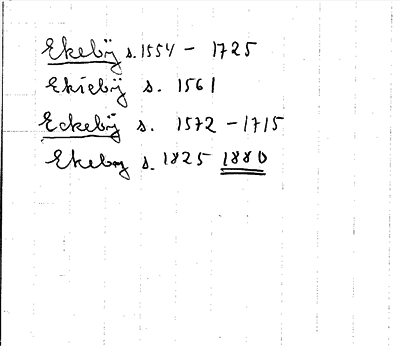 Ekebÿ s. 1554 - 1725
Ekiebÿ s. 1561
Eckebÿ s. 1572 - 1715
Ekeby s. 1825 1880